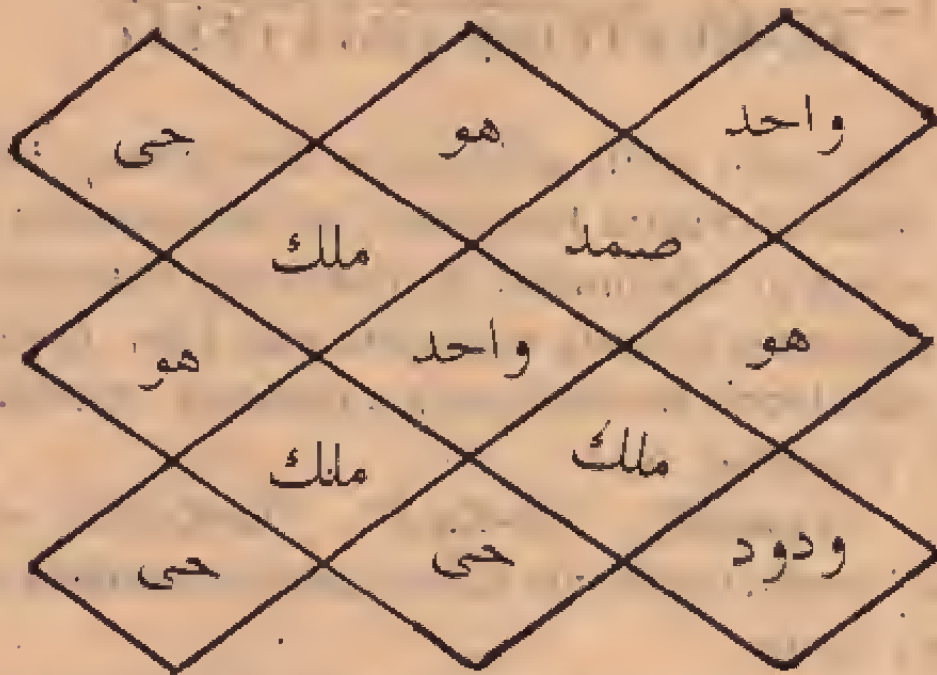 واحد هو حى
صمد ملك
هو واحد هو
ملك ملك
ودود حى حى